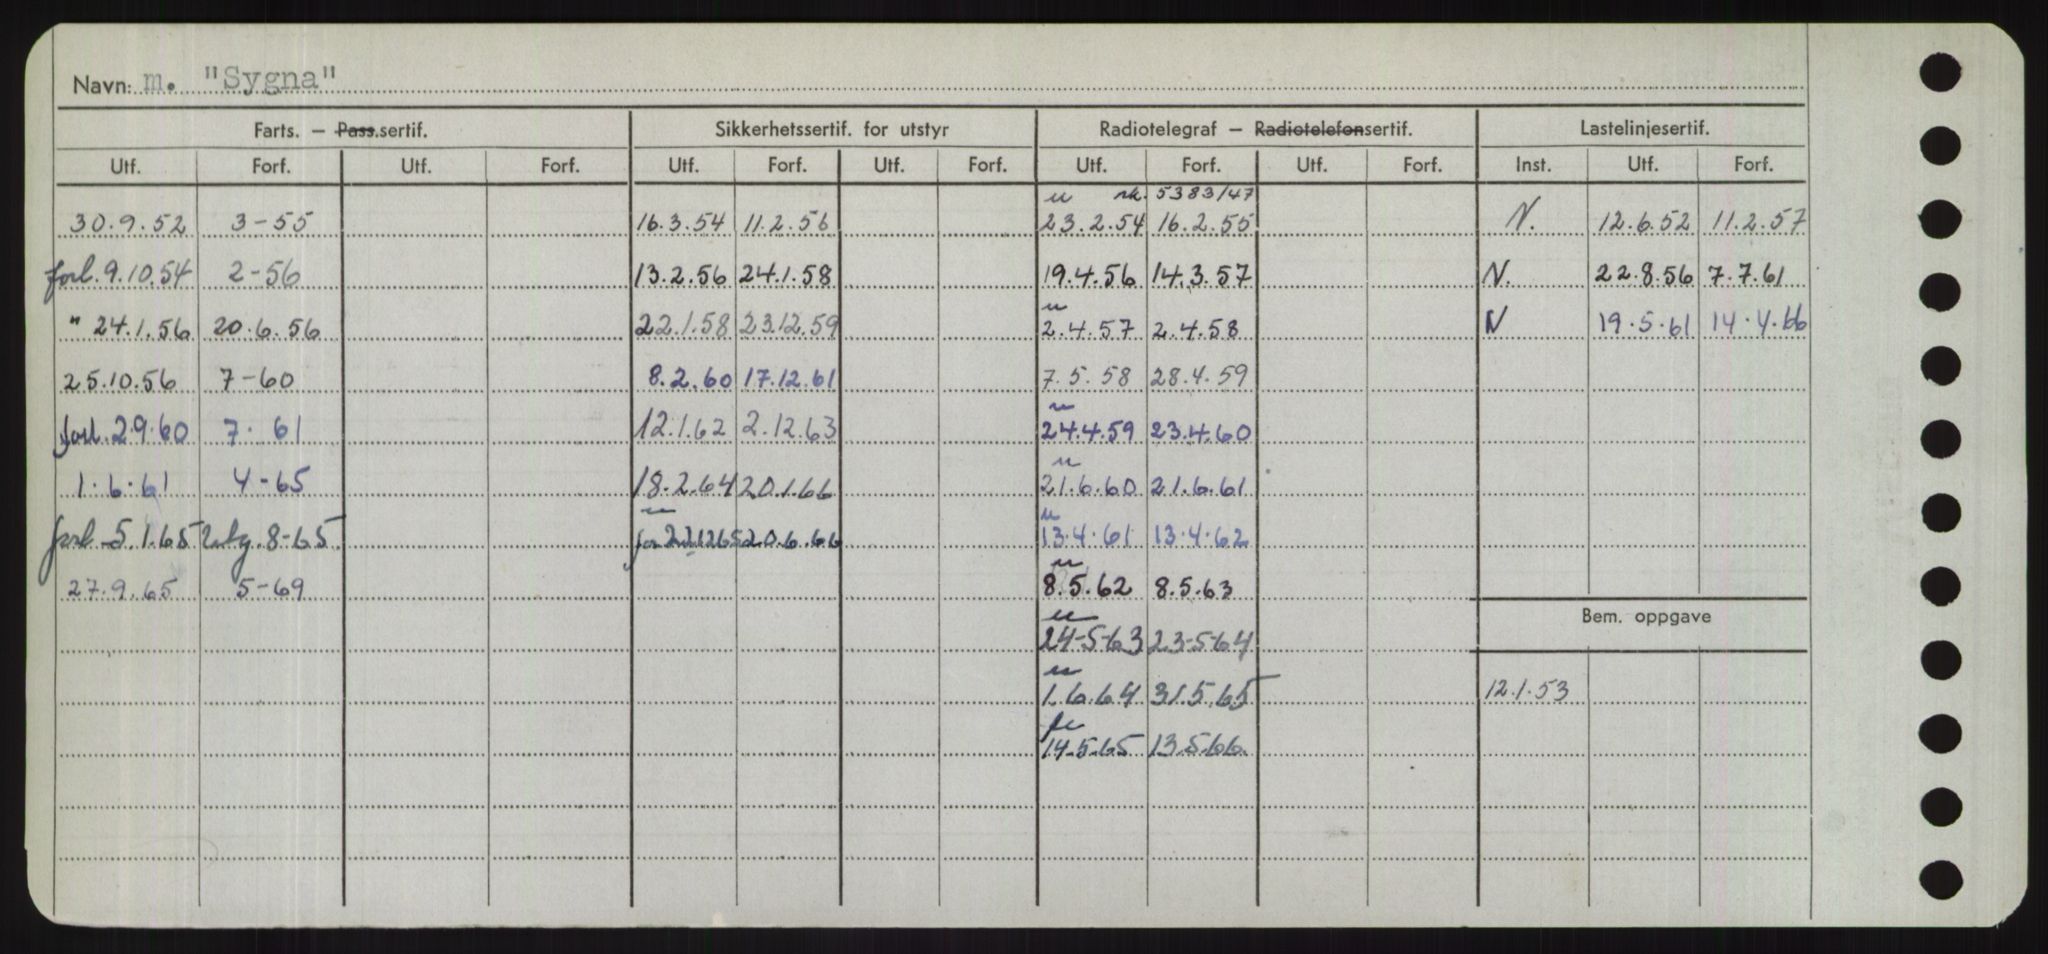 Navn: m. "Sygna"
Farts. – Pass.sertif. Sikkerhetssertif. for utstyr Radiotelegraf – Radiotelefonsertif. Lastelinjesertif.
Utf. Forf. Utf. Forf. Utf. Forf. Utf. Forf. Utf. Forf. Utf. Forf. Inst. Utf. Forf.
u rk. 5383/47
30.9.52 3-55 16.3.54 11.2.56 23.2.54 16.2.55 N. 12.6.52 11.2.57
forl. 9.10.54 2-56 13.2.56 24.1.58 19.4.56 14.3.57 N. 22.8.56 7.7.61
u
" 24.1.56 20.6.56 22.1.58 23.12.59 2.4.57 2.4.58 N 19.5.61 14.4.66
25.10.56 7-60 8.2.60 17.12.61 7.5.58 28.4.59
u
forl. 2.9.60 7. 61 12.1.62 2.12.63 24.4.59 23.4.60
u
1.6.61 4-65 18.2.64 20.1.66 21.6.60 21.6.61
u u
forl. 5.1.65 8-65 22.12.65 20.6.66 13.4.61 13.4.62
u
27.9.65 5-69 8.5.62 8.5.63
Bem. oppgave
u
24-5-63 23-5-64
u
1.6.64 31.5.65 12.1.53
14.5.65 13.5.66